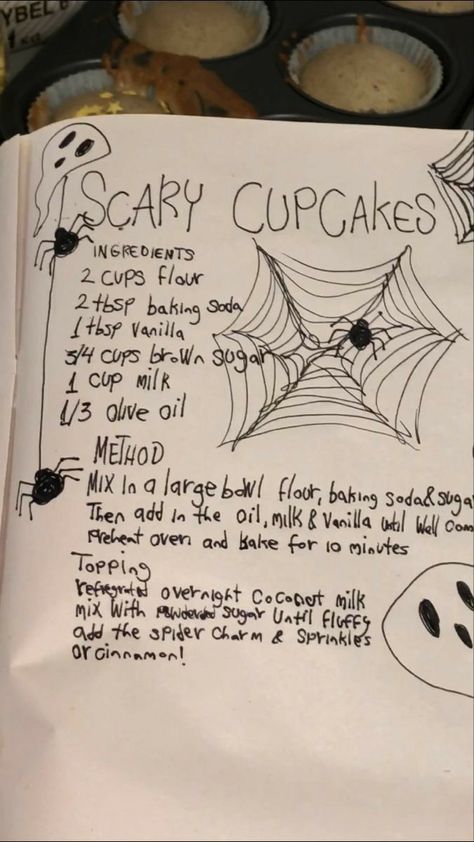 YBEL B
1KG
SCARY CUPCAKES
INGREDIENTS
2 cups flour
2 tbsp baking soda
1 tbsp Vanilla
3/4 cups brown sugar
1 cup milk
1/3 olive oil
METHOD
Mix in a large bowl flour, baking soda & suga
Then add in the oil, milk & Vanilla until well com
Preheat oven and bake for 10 minutes
Topping
refregrated overnight coconut milk
mix with powderded sugar until fluffy
add the spider charm & sprinkles
or cinnamon!